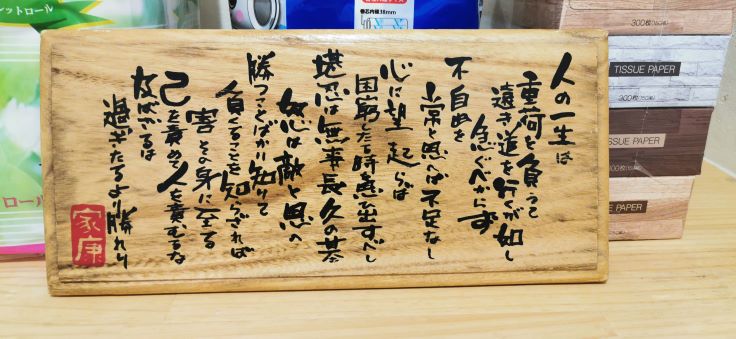 人の一生は
重荷を負うて
遠き道を行くが如し
急ぐべからず
不自由を
常と思へば不足なし
心に望起らば
困窮したる時を思ひ出すべし
堪忍は無事長久の基
怒は敵と思へ
勝つことばかり知りて
負くることを知らざれば
害その身に至る
己を責めて人を責むるな
及ばざるは
過ぎたるより勝れり
家康
レットロール
ロール
巻芯内径38mm
300枚(150組)
TISSUE PAPER
300枚(150組)
TISSUE PAPER
SSUE PAPER